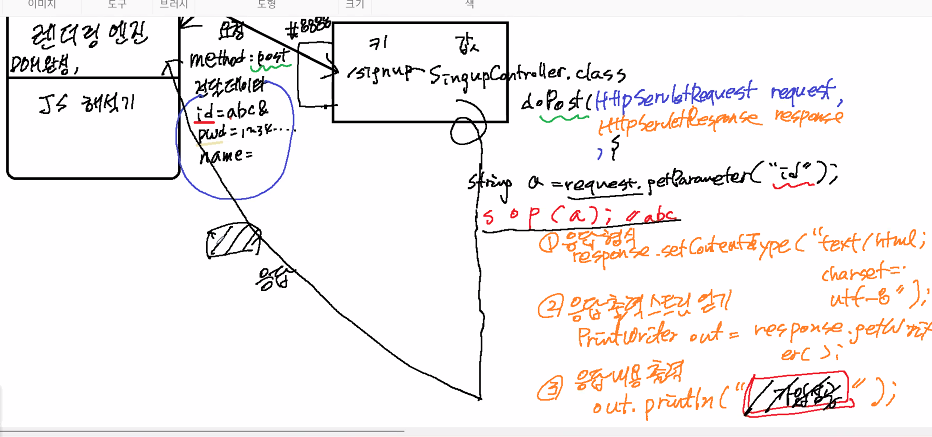 이미지
도구
브러시
도형
크기
색
렌더링 엔진
DOM 완성,
JS 해석기
요청
method: post
전달데이터
id=abc&
pwd=1234....
name=
#8888
키 값
/signup - SingupController.class
doPost(HttpServletRequest request,
HttpServletResponse response
) {
string a = request.getParameter("id");
s o p (a); //abc
① 응답형식
response.setContentType("text/html;
charset=
utf-8");
② 응답출력스트림 열기
PrintWriter out = response.getWrit
er();
③ 응답내용출력
out.println("가입성공");
응답